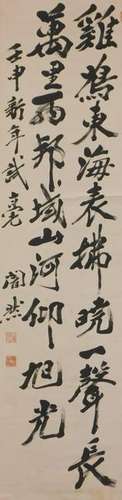 雞鳴東海表拂曉一聲長
萬里雨邦域山河仰旭光
壬申新年試筆
闇然